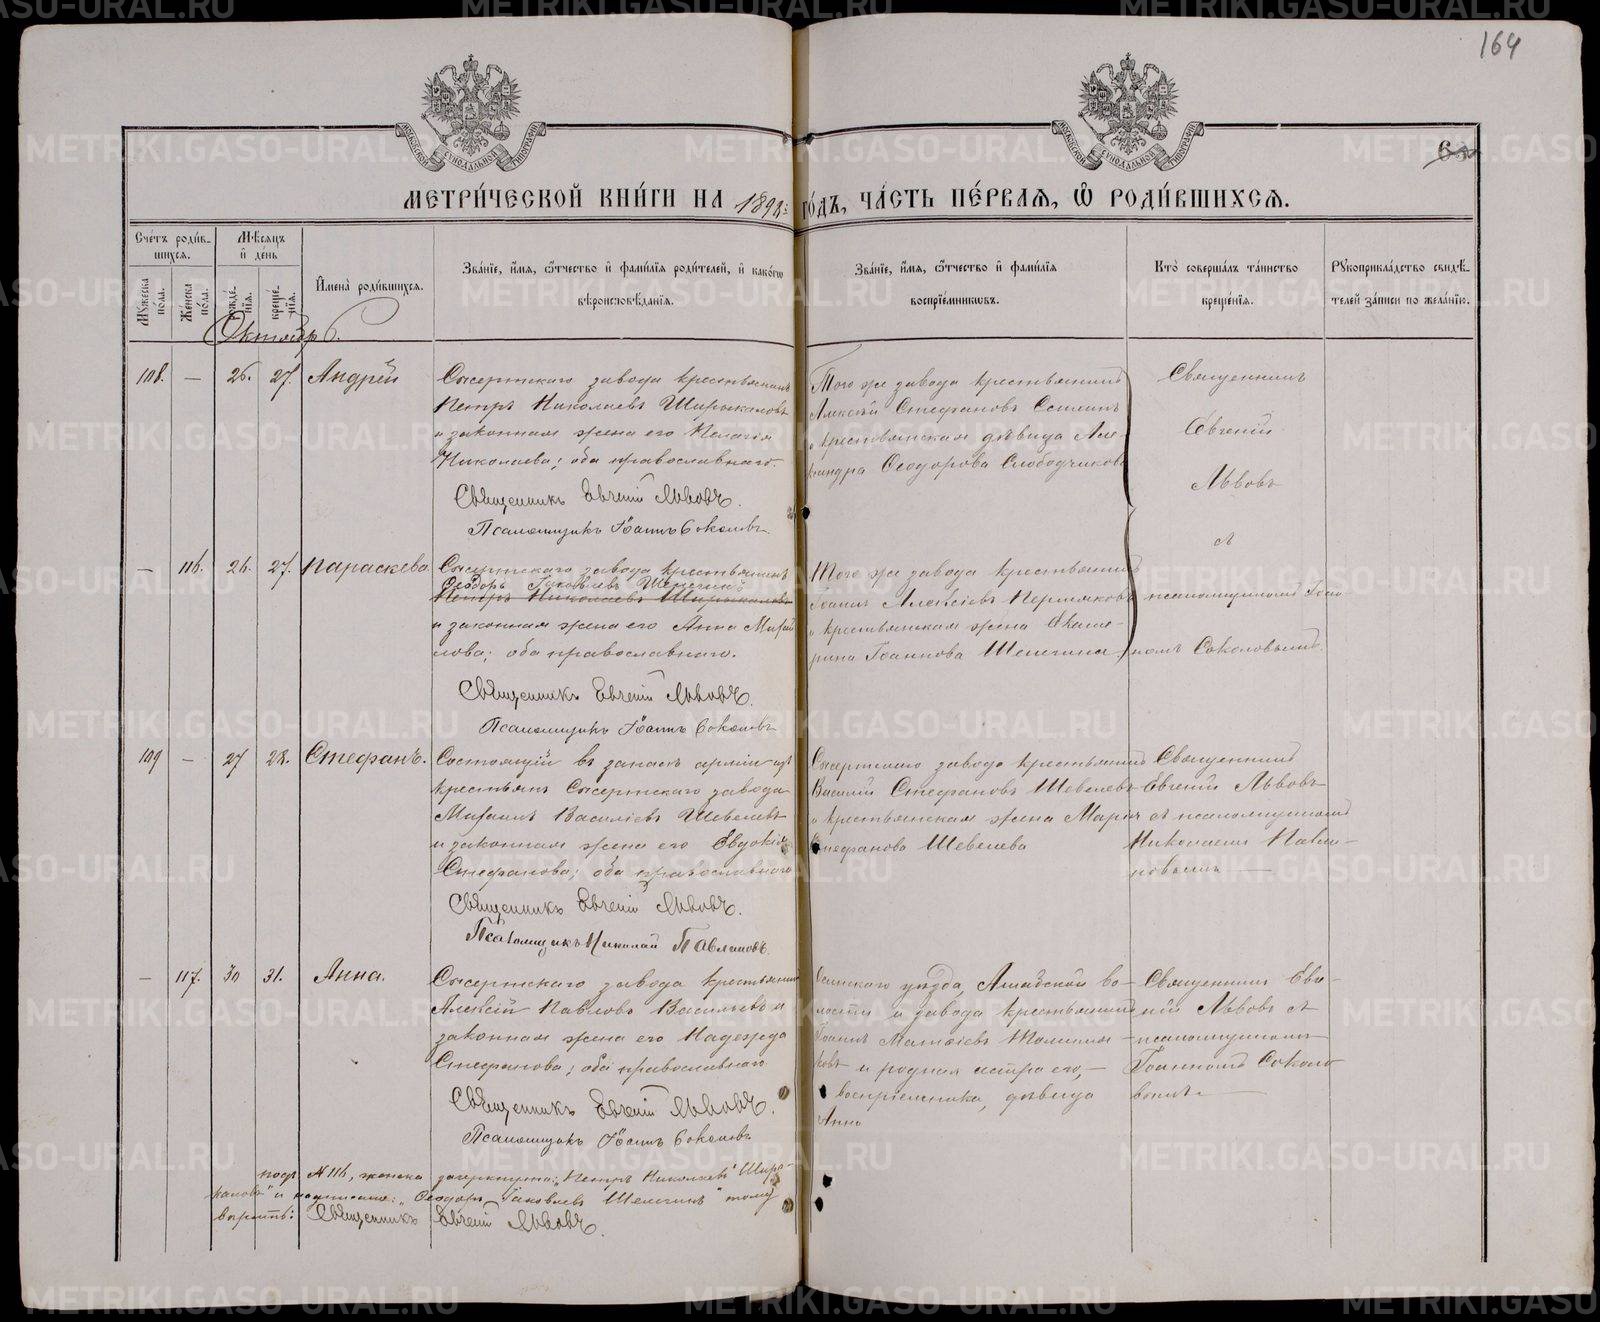 METRIKI.GASO-URAL.RU
164
МОСКОВСКОЙ СѴНОДАЛЬНОЙ ТИПОГРАФІИ
МОСКОВСКОЙ СѴНОДАЛЬНОЙ ТИПОГРАФІИ
МЕТРИ́ЧЕСКОЙ КНИ́ГИ НА 1892: ГО́ДЪ, ЧА́СТЬ ПЕ́РВАЯ, Ѽ РОДИ́ВШИХСЯ.
Сче́тъ роди́вшихся.
Мѣ́сяцъ и де́нь
Му́жеска по́ла.
Же́нска по́ла.
рожде́нія.
креще́нія.
Имена̀ роди́вшихся.
Зва́ніе, и́мя, ѻ҆́тчество и҆ фами́лія роди́телей, и҆ како́гѡ вѣроисповѣ́данія.
Зва́ніе, и́мя, ѻ҆́тчество и҆ фами́лія воспріе́мниковъ.
Кто̀ соверша́лъ та́инство креще́нія.
Рꙋкоприкла́дство свидѣ́телей за́писи по жела́нію.
Октябрь.
108. — 26. 27. Андрей
Сысертскаго завода крестьянинъ
Петръ Николаевъ Ширыкаловъ
и законная жена его Пелагія
Николаева; оба православнаго.
Священникъ Евгеній Львовъ.
Псаломщикъ Іоаннъ Соколовъ
Того же завода крестьянинъ
Алексій Стефановъ
и крестьянская дѣвица Але-
ксандра Ѳеодорова Слободчикова
Священникъ
Евгеній
Львовъ
— 116. 26. 27. Параскева.
Сысертскаго завода крестьянинъ
Ѳеодоръ Іаковлевъ Шепегинъ
Петръ Николаевъ Ширыкаловъ
и законная жена его Анна Михай
лова; оба православнаго.
Священникъ Евгеній Львовъ.
Псаломщикъ Іоаннъ Соколовъ
Того же завода крестьянинъ
Іоаннъ Алексіевъ Пермяковъ
и крестьянская жена Екате-
рина Іоаннова Шепегина.
псаломщикомъ Іоан
номъ Соколовымъ.
109 — 27 28. Стефанъ.
Состоящій въ запасѣ арміи изъ
крестьянъ Сысертскаго завода
Михаилъ Василіевъ Шевелевъ
и законная жена его Евдокія
Стефанова; оба православнаго
Священникъ Евгеній Львовъ.
Псаломщикъ Николай Павлиновъ
Сысертскаго завода крестьянинъ
Василій Стефановъ Шевелевъ
и крестьянская жена Марія
Стефанова Шевелева
Священникъ
Евгеній Львовъ
съ псаломщикомъ
Николаемъ Павли-
новымъ —
— 117. 30 31. Анна.
Сысертскаго завода крестьянинъ
Алексій Павловъ Васильевъ и
законная жена его Надежда
Стефанова; оба православнаго
Священникъ Евгеній Львовъ.
Псаломщикъ Іоаннъ Соколовъ
уѣзда, во-
лости и завода крестьянинъ
Іоаннъ Матѳіевъ
и родная сестра его, —
воспріемника, дѣвица
Анна
Священникъ Евге-
ній Львовъ съ
псаломщикомъ
Іоанномъ Соколо
вымъ. —
подъ № 116, женска зачеркнуто: „Петръ Николаевъ Ширы-
каловъ“ и надписано: „Ѳеодоръ Іаковлевъ Шепегинъ“ тому
вѣрить: Священникъ Евгеній Львовъ.